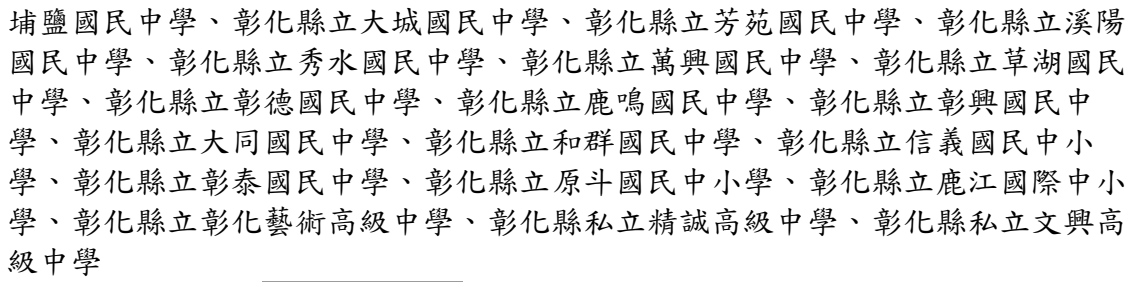 埔鹽國民中學、彰化縣立大城國民中學、彰化縣立芳苑國民中學、彰化縣立溪陽
國民中學、彰化縣立秀水國民中學、彰化縣立萬興國民中學、彰化縣立草湖國民
中學、彰化縣立彰德國民中學、彰化縣立鹿鳴國民中學、彰化縣立彰興國民中
學、彰化縣立大同國民中學、彰化縣立和群國民中學、彰化縣立信義國民中小
學、彰化縣立彰泰國民中學、彰化縣立原斗國民中小學、彰化縣立鹿江國際中小
學、彰化縣立彰化藝術高級中學、彰化縣私立精誠高級中學、彰化縣私立文興高
級中學